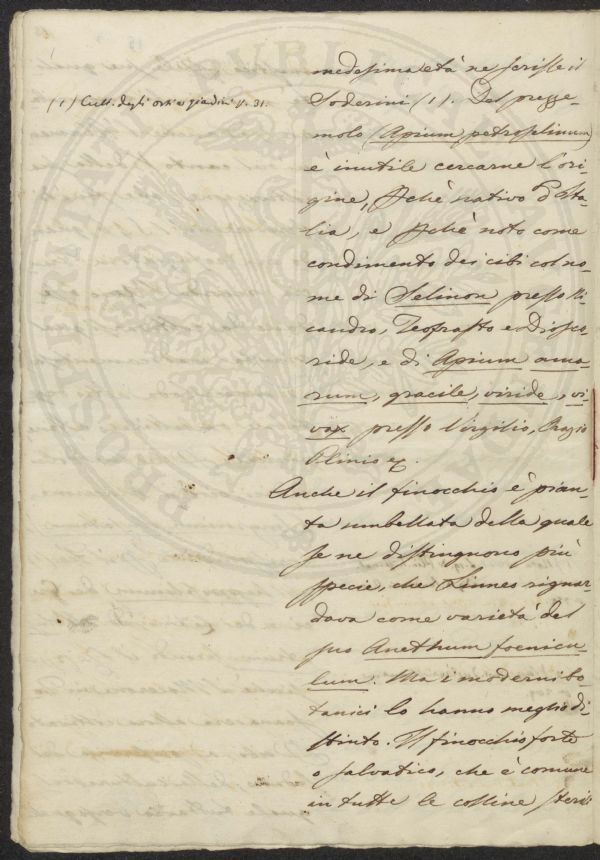 medesima età ne scrisse il
(1) Cult. degli orti e giardini p. 31.
Soderini (1). Del prezze-
molo (Apium petroselinum)
è inutile cercarne l'ori-
gine, pchè nativo d'Ita-
lia, e pchè noto come
condimento dei cibi col no-
me di Selinon presso Ni-
candro, Teofrasto e Diosco-
ride, e di Apium ama-
rum, gracile, viride, vi-
vax presso Virgilio, Orazio
Plinio ec.
Anche il finocchio è pian-
ta umbellata della quale
se ne distinguono più
specie, che Linneo riguar-
dava come varietà del
suo Anethum foenicu-
lum. Ma i moderni bo-
tanici lo hanno meglio di-
stinto. Il finocchio forte
o salvatico, che è comune
in tutte le colline steri-